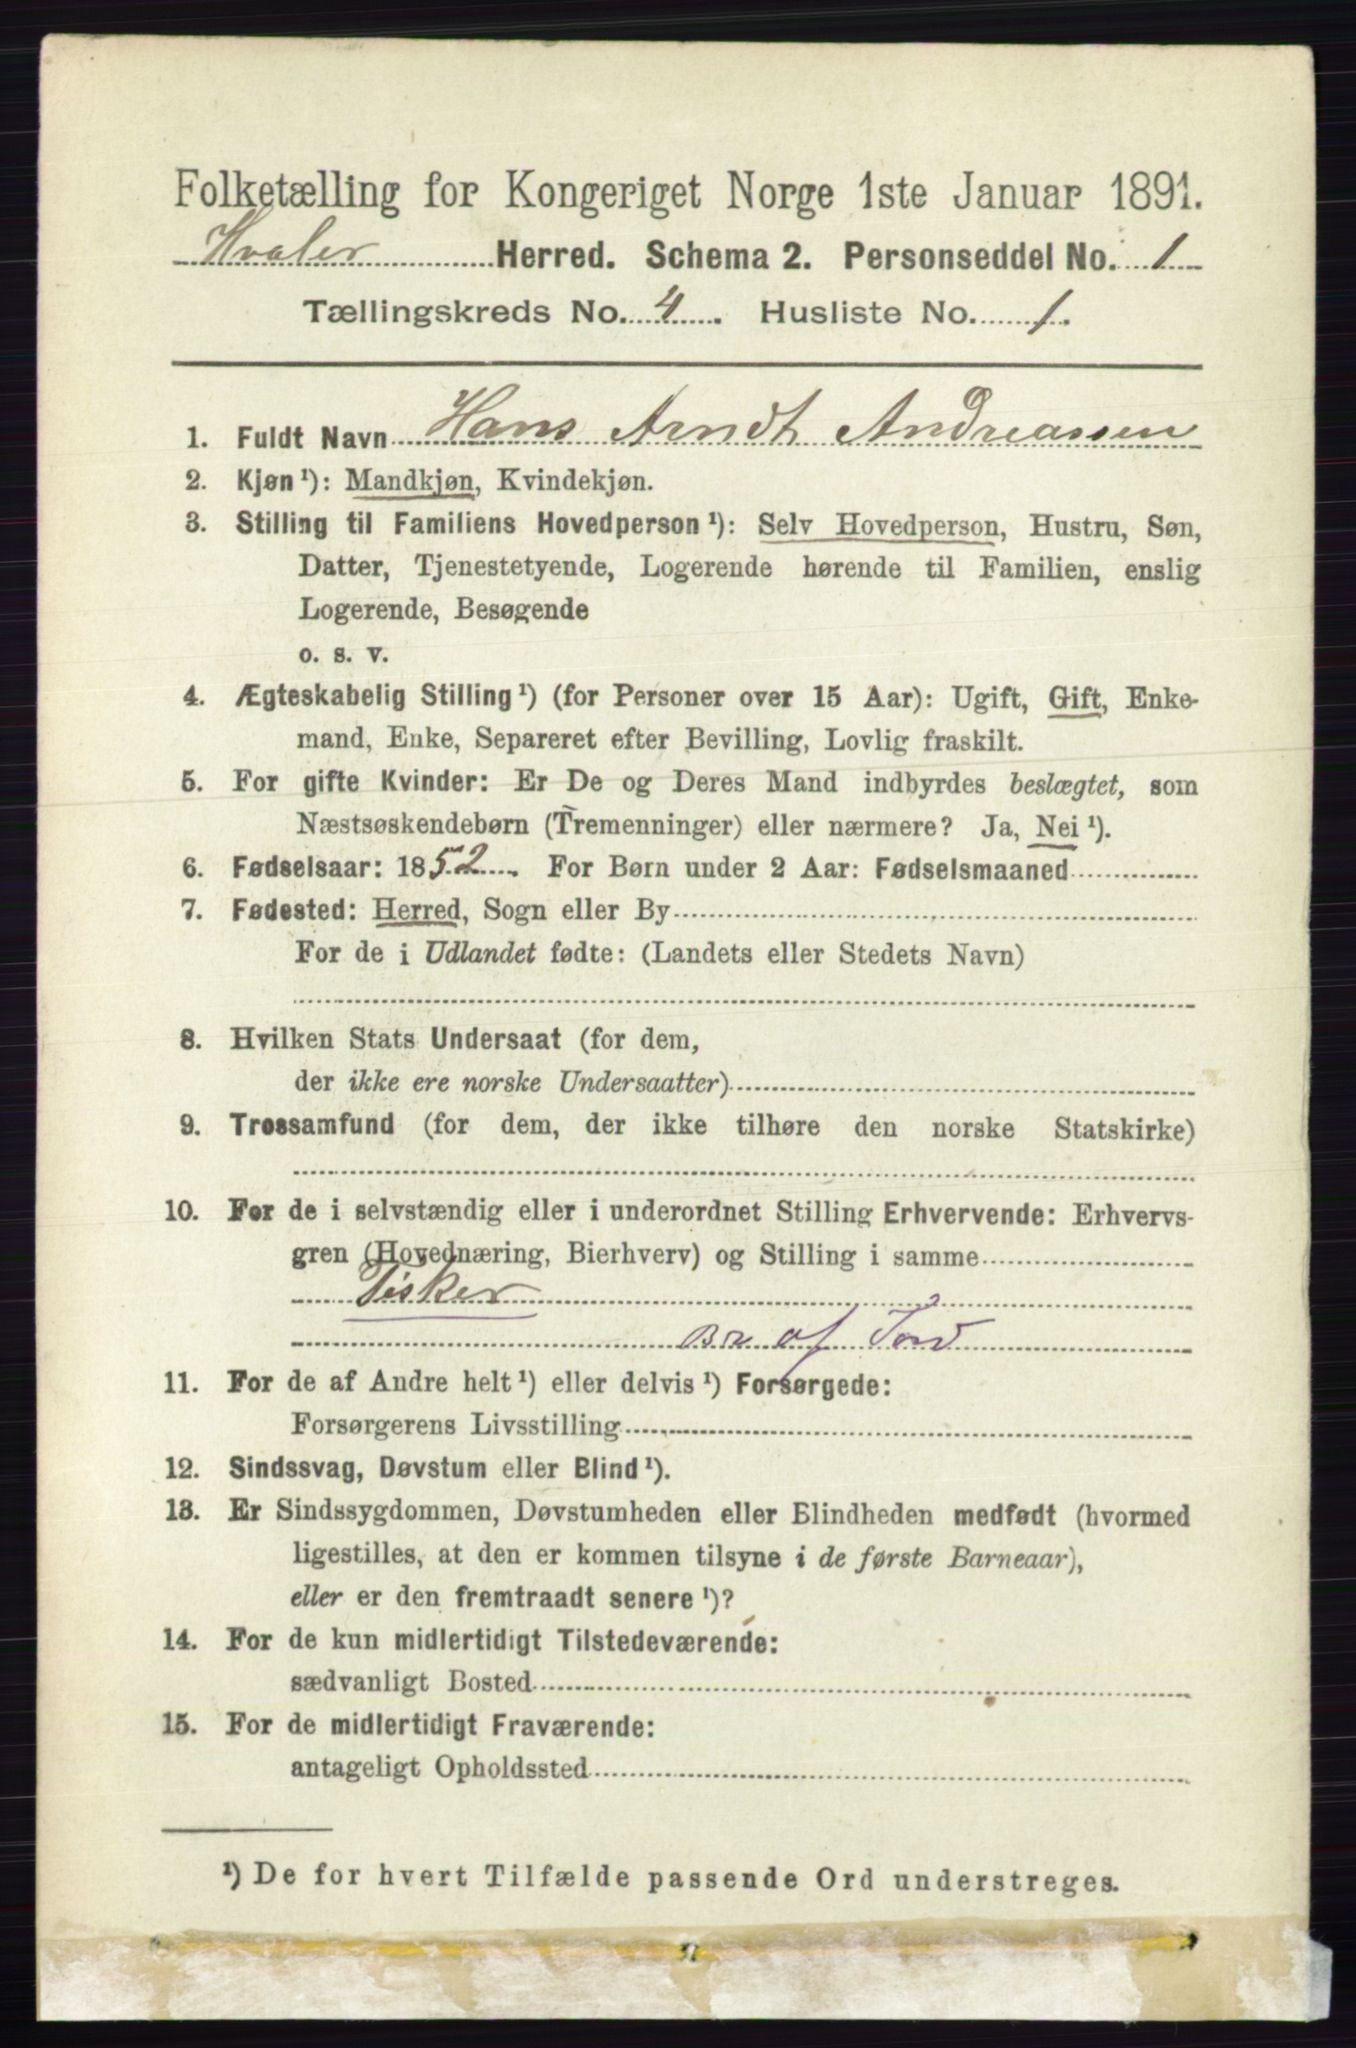 Folketælling for Kongeriget Norge 1ste Januar 1891.
Hvaler Herred. Schema 2. Personseddel No. 1
Tællingskreds No. 4. Husliste No. 1.
1. Fuldt Navn Hans Arndt Andreassen
2. Kjøn ¹): Mandkjøn, Kvindekjøn.
3. Stilling til Familiens Hovedperson ¹): Selv Hovedperson, Hustru, Søn,
Datter, Tjenestetyende, Logerende hørende til Familien, enslig
Logerende, Besøgende
o. s. v.
4. Ægteskabelig Stilling ¹) (for Personer over 15 Aar): Ugift, Gift, Enke-
mand, Enke, Separeret efter Bevilling, Lovlig fraskilt.
5. For gifte Kvinder: Er De og Deres Mand indbyrdes beslægtet, som
Næstsøskendebørn (Tremenninger) eller nærmere? Ja, Nei ¹).
6. Fødselsaar: 1852. For Børn under 2 Aar: Fødselsmaaned
7. Fødested: Herred, Sogn eller By
For de i Udlandet fødte: (Landets eller Stedets Navn)
8. Hvilken Stats Undersaat (for dem,
der ikke ere norske Undersaatter)
9. Trossamfund (for dem, der ikke tilhøre den norske Statskirke)
10. For de i selvstændig eller i underordnet Stilling Erhvervende: Erhvervs-
gren (Hovednæring, Bierhverv) og Stilling i samme
Fisker
Br af Jord
11. For de af Andre helt ¹) eller delvis ¹) Forsørgede:
Forsørgerens Livsstilling
12. Sindssvag, Døvstum eller Blind ¹).
13. Er Sindssygdommen, Døvstumheden eller Blindheden medfødt (hvormed
ligestilles, at den er kommen tilsyne i de første Barneaar),
eller er den fremtraadt senere ¹)?
14. For de kun midlertidigt Tilstedeværende:
sædvanligt Bosted
15. For de midlertidigt Fraværende:
antageligt Opholdssted
¹) De for hvert Tilfælde passende Ord understreges.